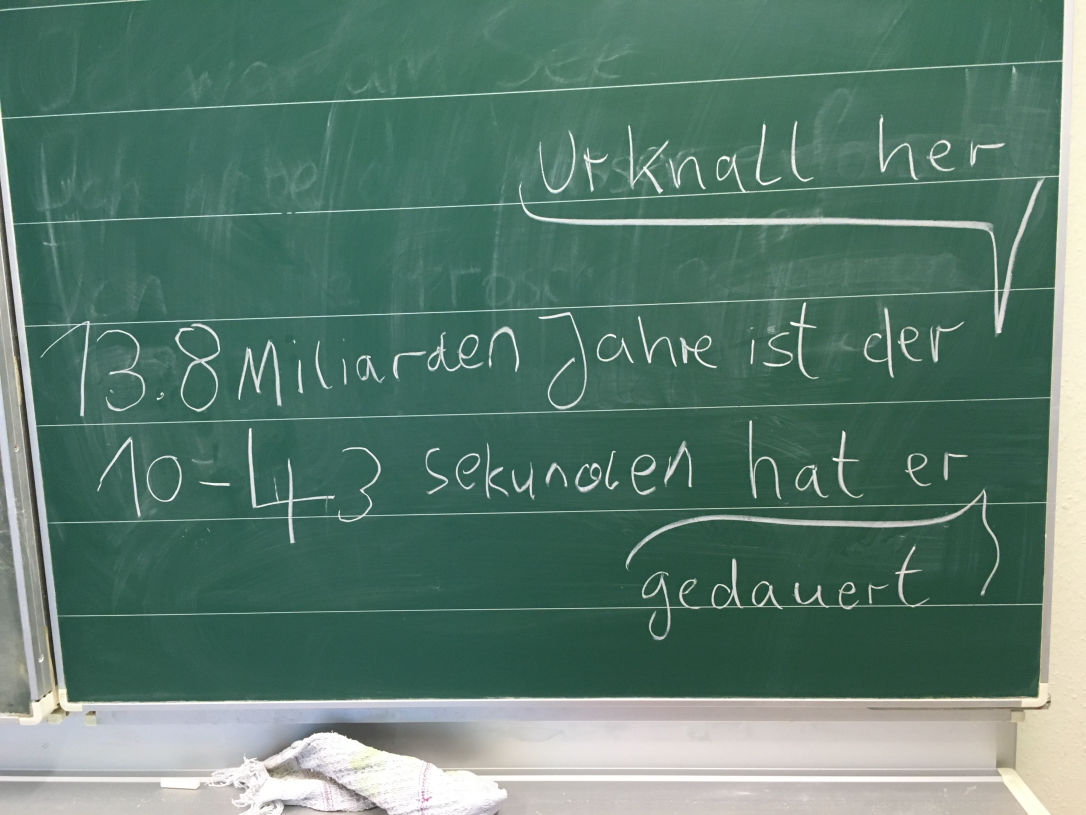 Urknall her
13.8 Miliarden Jahre ist der
10-43 sekunden hat er
gedauert